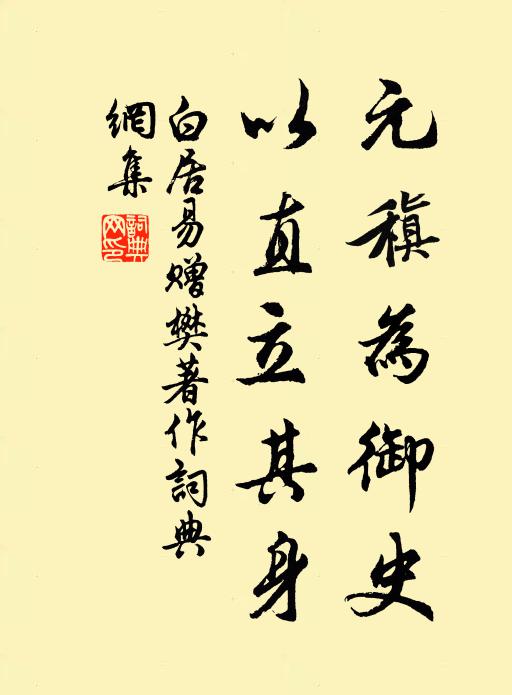 元稹為御史
以直立其身
白居易贈樊著作詞典
網集
詞典網印